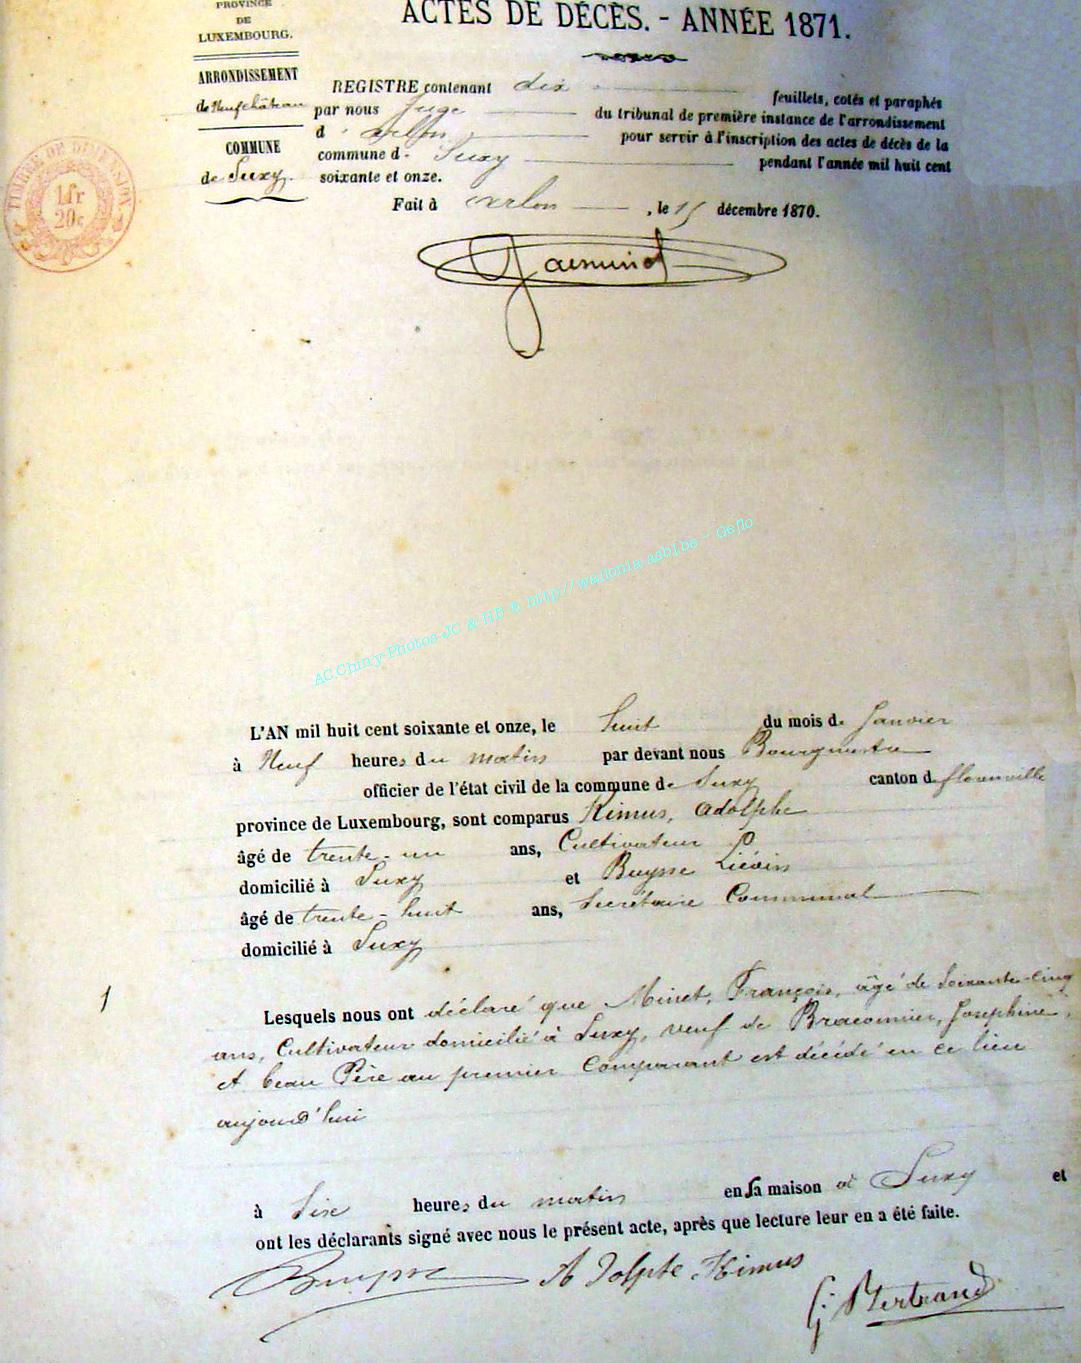 PROVINCE
DE
LUXEMBOURG.
ARRONDISSEMENT
de Neufchâteau
COMMUNE
de Suxy.
TIMBRE DE DIMENSION
1fr
20c
ACTES DE DÉCÈS. - ANNÉE 1871.
REGISTRE contenant dix feuillets, cotés et paraphés
par nous Juge du tribunal de première instance de l'arrondissement
d'Arlon pour servir à l'inscription des actes de décès de la
commune de Suxy pendant l'année mil huit cent
soixante et onze.
Fait à Arlon, le 15 décembre 1870.
AC.Chiny-Photos-JC & HB-® http://wallonia-asbl.be - Geflo
L'AN mil huit cent soixante et onze, le huit du mois de Janvier
à Neuf heures du matin par devant nous Bourgmestre
officier de l'état civil de la commune de Suxy canton de florenville
province de Luxembourg, sont comparus Himus, Adolphe
âgé de trente-un ans, Cultivateur
domicilié à Suxy et Buysse Liévin
âgé de trente-huit ans, Secrétaire Communal
domicilié à Suxy
1
Lesquels nous ont déclaré que Minet, François, âgé de Soixante-cinq
ans, Cultivateur domicilié à Suxy, veuf de Braconnier, Josephine,
et beau Père au premier Comparant est décédé en ce lieu
aujourd'hui
à Six heures du matin en sa maison à Suxy et
ont les déclarants signé avec nous le présent acte, après que lecture leur en a été faite.
Buysse Adolphe Himus
G. Bertrand